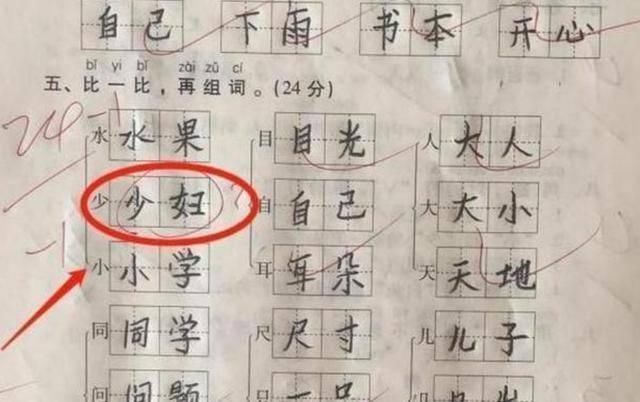 自己 下雨 书本 开心
bǐ yi bǐ zài zǔ cí
五、比一比，再组词。(24分)
24 -1
水 水果 目 目光 人 大人
少 少妇 自 自己 大 大小
-1
小 小学 耳 耳朵 天 天地
同 同学 尺 尺寸 儿 儿子
问 问题 只 一只 几